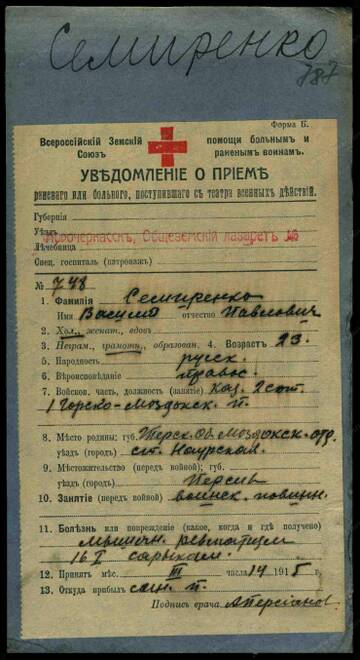 Семиренко
787
Форма Б.
Всероссійскій Земскій Союзъ
помощи больнымъ и раненымъ воинамъ.
УВѢДОМЛЕНІЕ О ПРІЕМѢ
раненаго или больного, поступившаго съ театра военныхъ дѣйствій.
Губернія
Уѣздъ
Новочеркасскъ, Общеземскій лазаретъ №
Лѣчебница
Спец. госпиталь (патронажъ)
№ 748
1. Фамилія Семиренко
Имя Василій отчество Павловичъ
2. Хол., женат., вдов.
3. Неграм., грамотн., образован. 4. Возрастъ 23.
5. Народность русск.
6. Вѣроисповѣданіе правос.
7. Войсков. часть, должность (занятіе) каз. 2 сот.
1 Горско-Моздокск. п.
8. Мѣсто родины; губ. Терск. Об. Моздокск. отд.
уѣздъ (городъ) ст. Наурская.
9. Мѣстожительство (передъ войной); губ.
уѣздъ (городъ) Персія
10. Занятіе (передъ войной) воинск. повинн.
11. Болѣзнь или поврежденіе (какое, когда и гдѣ получено)
мышечн. ревматизм
16 I сарыкам.
12. Принятъ мѣс. III числа 14 1915 г.
13. Откуда прибылъ сан. п.
Подпись врача